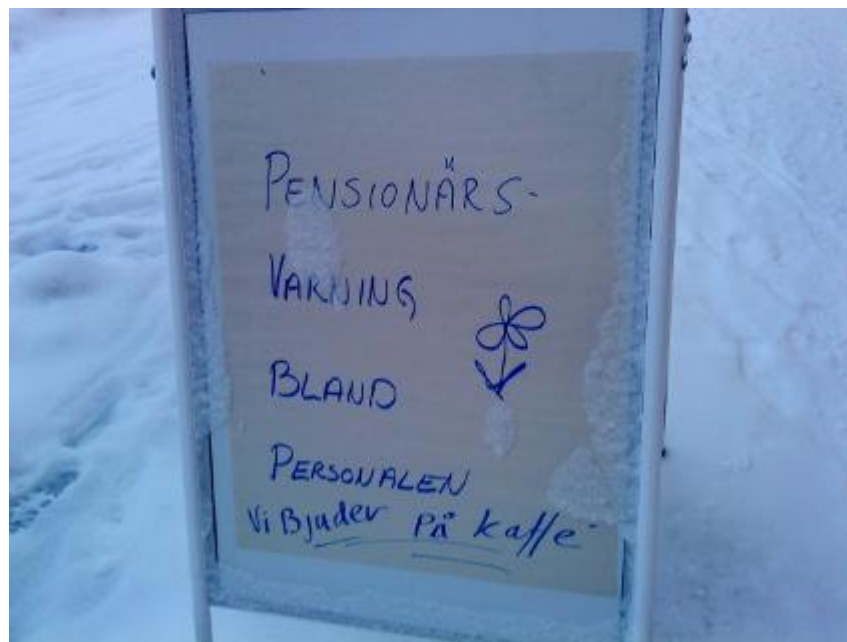 PENSIONÄRS-
VARNING
BLAND
PERSONALEN
Vi Bjuder på kaffe